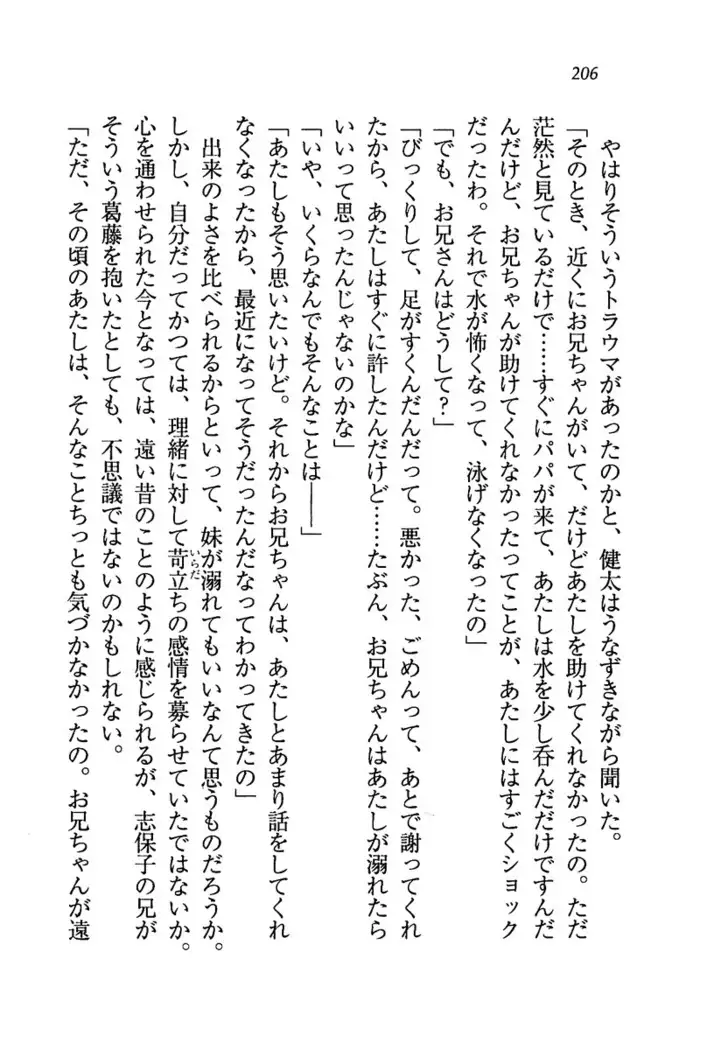 206
やはりそういうトラウマがあったのかと、健太はうなずきながら聞いた。
「そのとき、近くにお兄ちゃんがいて、だけどあたしを助けてくれなかったの。ただ
茫然と見ているだけで……すぐにパパが来て、あたしは水を少し呑んだだけですんだ
んだけど、お兄ちゃんが助けてくれなかったってことが、あたしにはすごくショック
だったわ。それで水が怖くなって、泳げなくなったの」
「でも、お兄さんはどうして？」
「びっくりして、足がすくんだんだって。悪かった、ごめんって、あとで謝ってくれ
たから、あたしはすぐに許したんだけど……たぶん、お兄ちゃんはあたしが溺れたら
いいって思ったんじゃないのかな」
「いや、いくらなんでもそんなことは――」
「あたしもそう思いたいけど。それからお兄ちゃんは、あたしとあまり話をしてくれ
なくなったから、最近になってそうだったんだなってわかってきたの」
出来のよさを比べられるからといって、妹が溺れてもいいなんて思うものだろうか。
しかし、自分だってかつては、理緒に対して苛立ちの感情を募らせていたではないか。
いらだ
心を通わせられた今となっては、遠い昔のことのように感じられるが、志保子の兄が
そういう葛藤を抱いたとしても、不思議ではないのかもしれない。
「ただ、その頃のあたしは、そんなことちっとも気づかなかったの。お兄ちゃんが遠